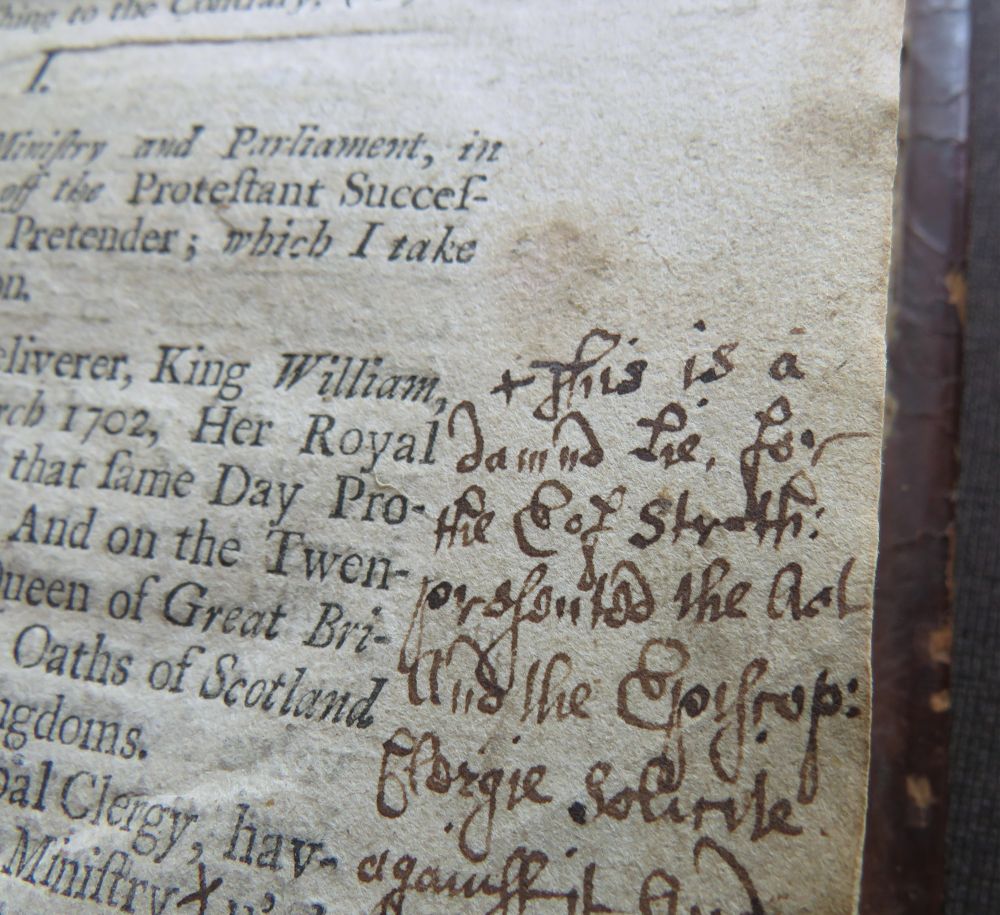 thing to the Contrary,
I.
Miniſtry and Parliament, in
off the Proteſtant Succeſ-
Pretender; which I take
on.
eliverer, King William,
rch 1702, Her Royal
that ſame Day Pro-
And on the Twen-
Queen of Great Bri-
Oaths of Scotland
ngdoms.
pal Clergy, hav-
Miniſtry x
+ This is a
damnd Lie, for
the E of Strath:
presented the Act
And the Episcop:
Clergie Solicite
against it And